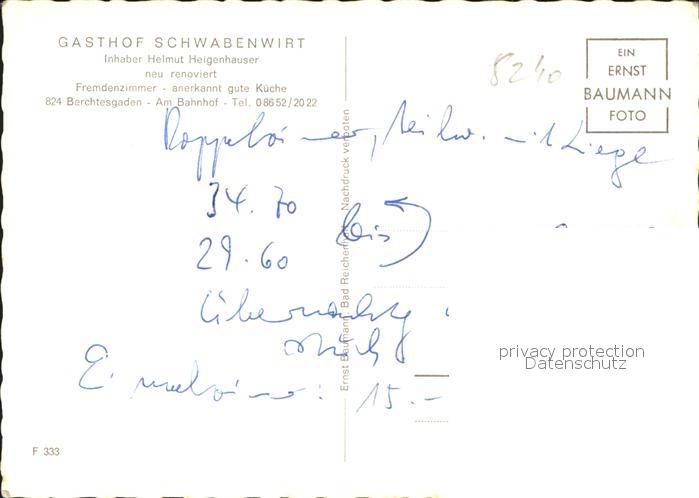 GASTHOF SCHWABENWIRT
Inhaber Helmut Heigenhauser
neu renoviert
Fremdenzimmer - anerkannt gute Küche
824 Berchtesgaden - Am Bahnhof - Tel. 08652/2022
8240
EIN
ERNST
BAUMANN
FOTO
Doppelzimmer, teilw. mit Liege
34.70
bis
29.60
Übernachtg
Einzelzimmer: 15.-
Ernst Baumann, Bad Reichenhall Nachdruck verboten
privacy protection
Datenschutz
F 333